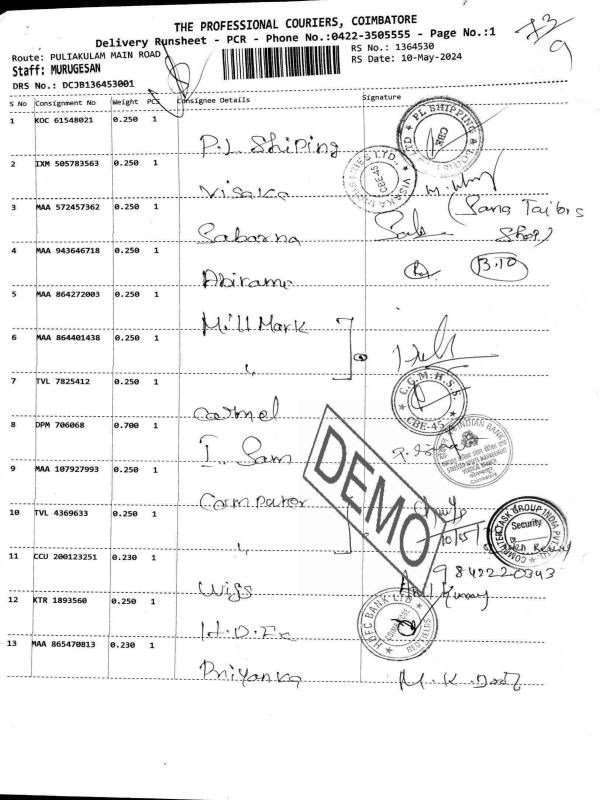 THE PROFESSIONAL COURIERS, COIMBATORE
Delivery Runsheet - PCR - Phone No.:0422-3505555 - Page No.:1
Route: PULIAKULAM MAIN ROAD
RS No.: 1364530
Staff: MURUGESAN
RS Date: 10-May-2024
DRS No.: DCJB136453001
S No Consignment No Weight PCS Consignee Details Signature
1 KOC 61548021 0.250 1 P.L Shiping
PL SHIPPING CBE
2 IXM 505783563 0.250 1 Visaka
VISAKA INDUSTRIES LTD., CBE-45
3 MAA 572457362 0.250 1 Sabarna
4 MAA 943646718 0.250 1 Abirami
13.10
5 MAA 864272003 0.250 1 Mill Mark
6 MAA 864401438 0.250 1 "
7 TVL 7825412 0.250 1 Carmel
C.C.M.H.S.S. CBE-45
8 DPM 706068 0.700 1 I. Sam
INDIAN BANK
9 MAA 107927993 0.250 1 Computer
DEMO
10 TVL 4369633 0.250 1 "
COMPUTER TASK GROUP INDIA PVT. Security
11 CCU 200123251 0.230 1 Wigs
9842220343
12 KTR 1893560 0.250 1 H.D.F.c
HDFC BANK LTD
13 MAA 865470813 0.230 1 Priyanka
M. K.